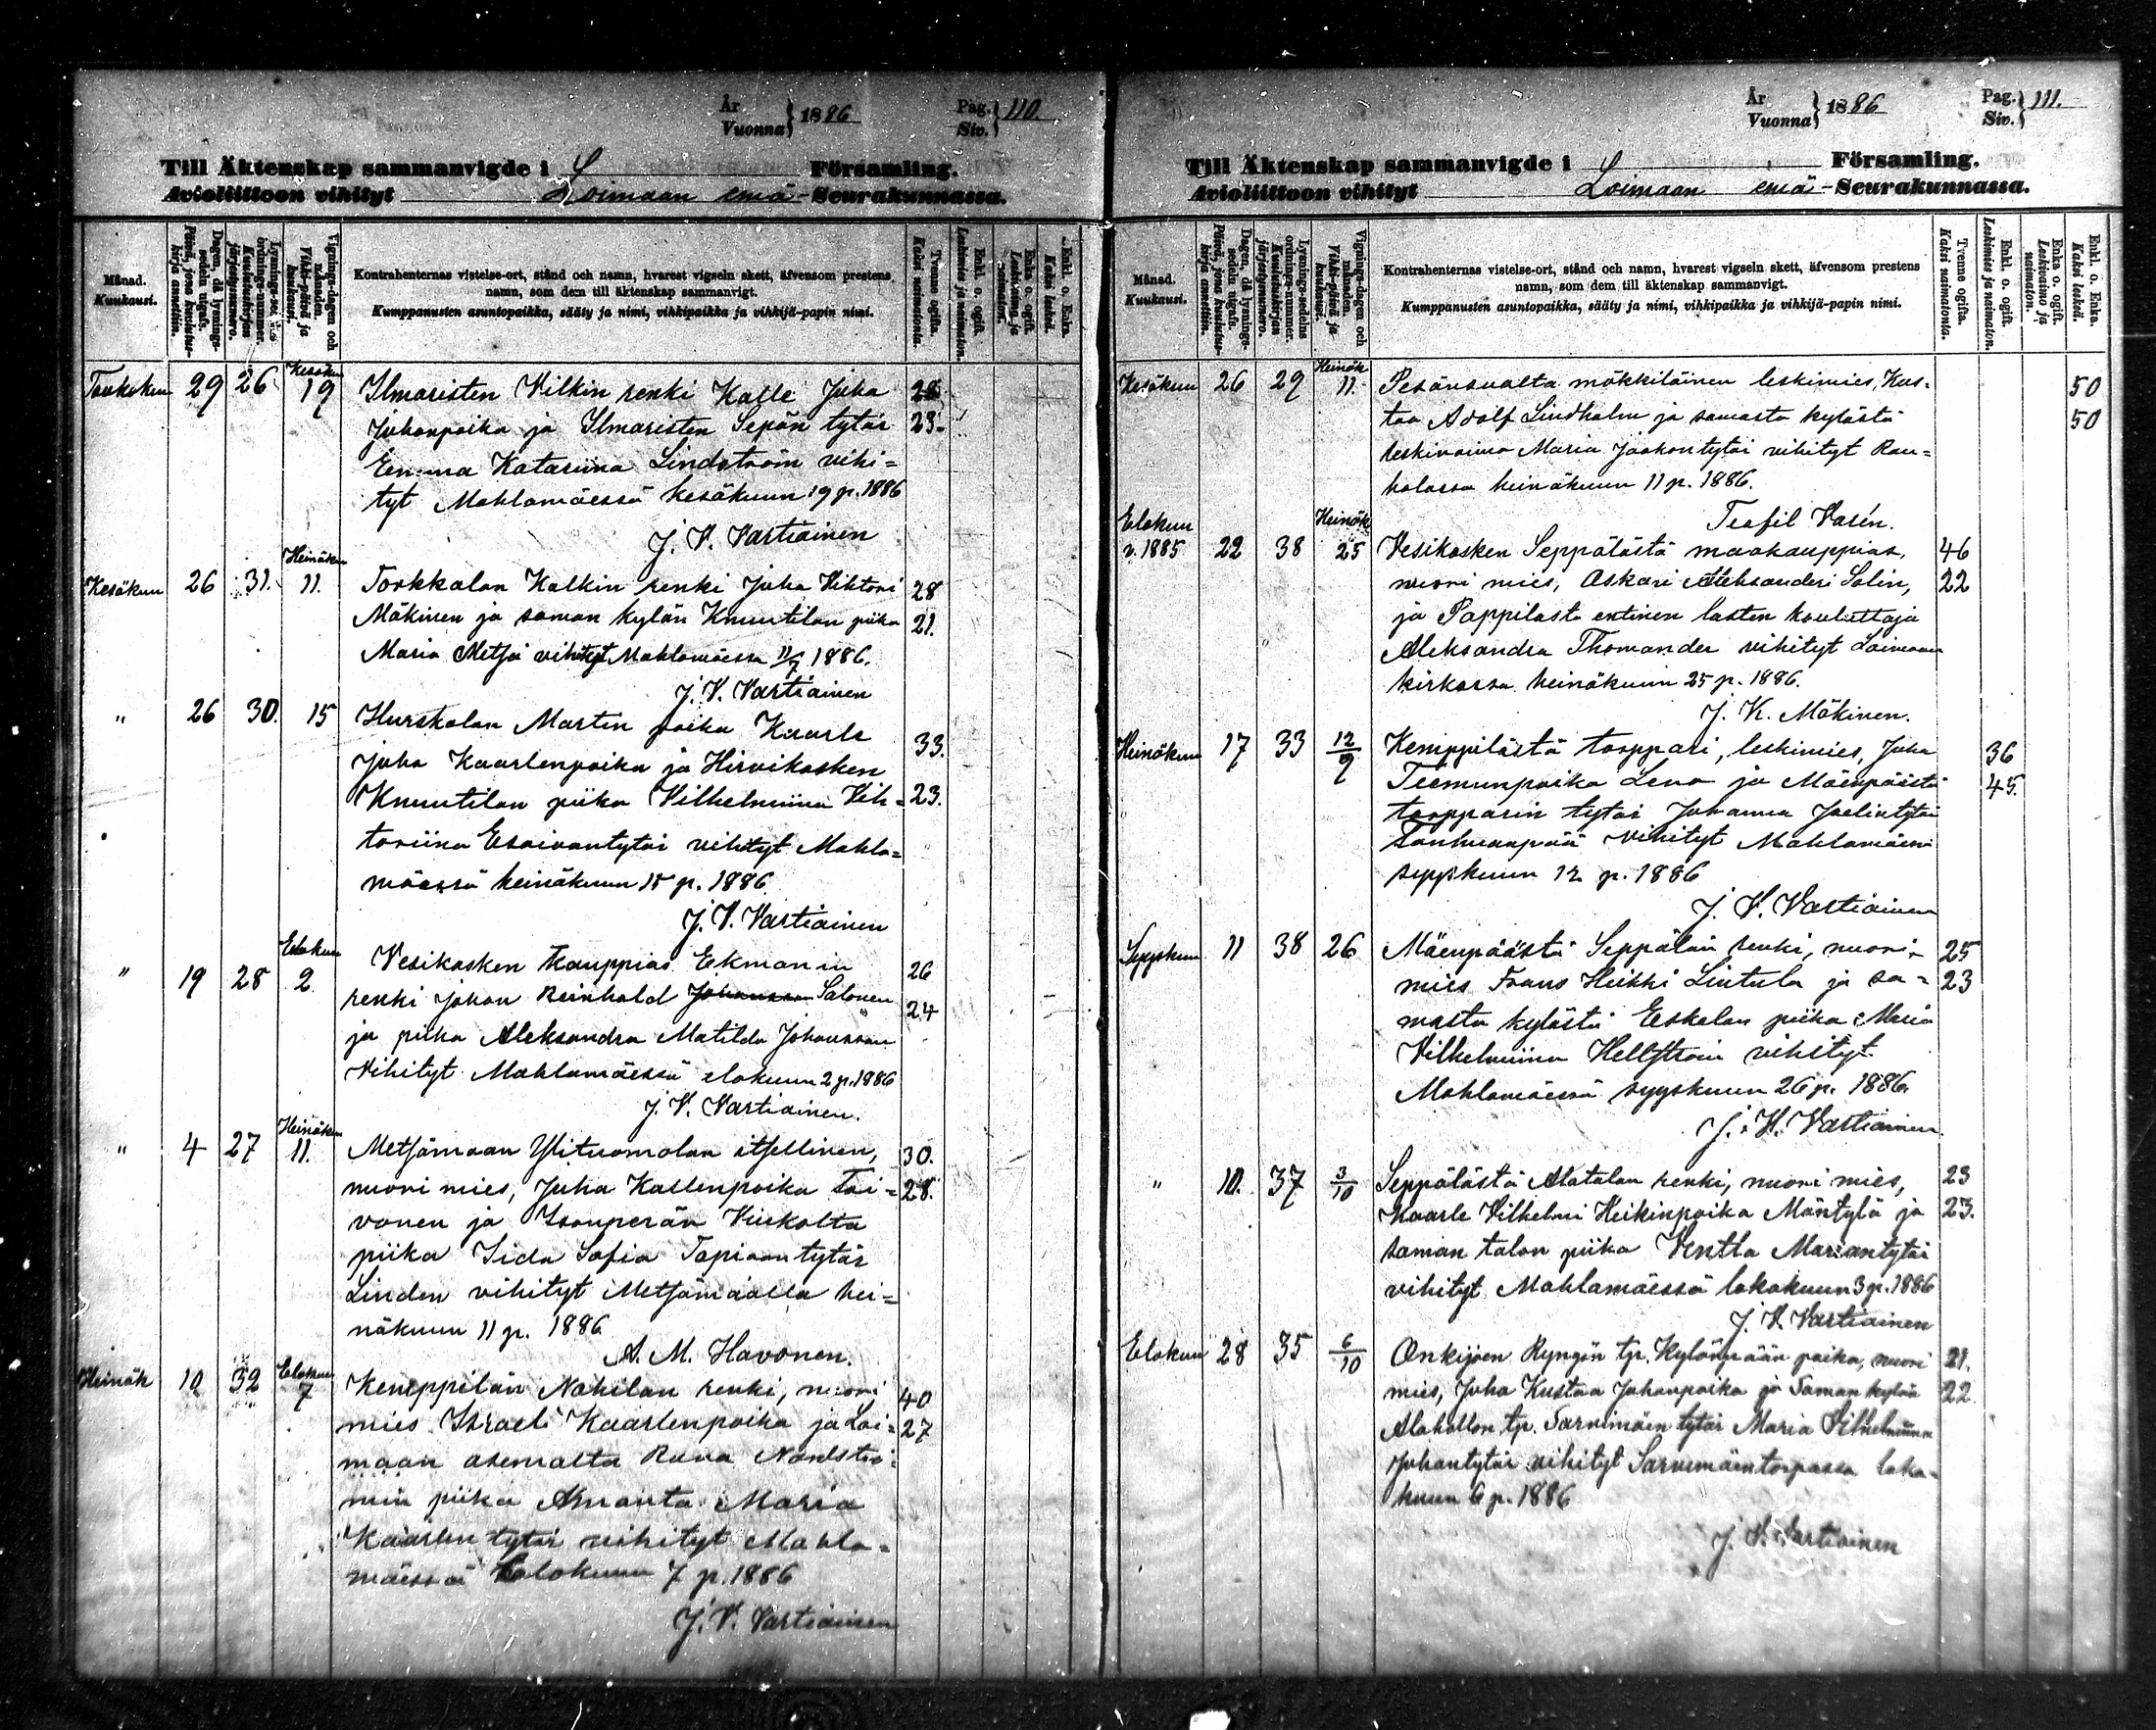 År
Vuonna } 1886
Pag.
Siv. } 110.
Till Äktenskap sammanvigde i L Församling.
Avioliittoon vihityt Loimaan emä-Seurakunnassa.
Månad.
Kuukausi.
Dagen, då lysnings-sedeln utgafs.
Päivä, jona kuulutus-kirja annettiin.
Lysnings-sedelns ordnings-nummer.
Kuulutuskirjan järjestysnumero.
Vignings-dagen och månaden.
Vihki-päivä ja kuukausi.
Kontrahenternas vistelse-ort, stånd och namn, hvarest vigseln skett, äfvensom prestens
namn, som dem till äktenskap sammanvigt.
Kumppanusten asuntopaikka, sääty ja nimi, vihkipaikka ja vihkijä-papin nimi.
Tvenne ogifta.
Kaksi naimatonta.
Enkl. o. ogift.
Leskimies ja naimaton.
Enka o. ogift.
Leskivaimo ja naimaton.
Enkl. o. Enka.
Kaksi leskeä.
Toukokuu 29 26 Kesäkuu 19 Ilmaristen Vilkin renki Kalle Juha 28
Juhonpoika ja Ilmaristen Sepän tytär 23
Emma Katariina Lindström vihi=
tyt Mahlamäessä kesäkuun 19 p. 1886
J. V. Vartiainen
Kesäkuu 26 31. Heinäkuu 11. Torkkalan Kalkin renki Juha Viktori 28
Mäkinen ja saman kylän Knuutilan piika 21.
Maria Metsä vihityt Mahlamäessä 11/7 1886.
J. V. Vartiainen
" 26 30. 15 Hurskalan Martin poika Kaarle 33.
Juho Kaarlenpoika ja Hirvikosken
Knuutilan piika Vilhelmiina Vih= 23.
toriina Esaivantytär vihityt Mahla=
mäessä heinäkuun 15 p. 1886
J. V. Vartiainen
" 19 28 Elokuu 2 Vesikosken Kauppias Ekmanin 26
renki Johan Reinhold Johansson Salonen 24
ja piika Aleksandra Matilda Johansson
Vihityt Mahlamäessä elokuun 2 p. 1886
J. V. Vartiainen.
" 4 27 Heinäkuu 11. Metsämaan Ylituomolan itsellinen, 30.
nuori mies, Juha Kallenpoika Toi= 28.
vonen ja Isonperän Uuskolta
piika Iida Sofia Tapiaantytär
Linden vihityt Metsämaalla hei=
näkuun 11 p. 1886
A. M. Havonen.
Heinäk 10 32 Elokuu 7 Kemppilän Nahilan renki, nuori 40
mies Israel Kaarlenpoika ja Loi= 27
maan asemalta Ruva Nordströ=
min piika Amanta Maria
Kaarlen tytär vihityt Mahla=
mäessä Elokuun 7 p. 1886
J. V. Vartiainen
År
Vuonna } 1886
Pag.
Siv. } 111.
Till Äktenskap sammanvigde i L Församling.
Avioliittoon vihityt Loimaan emä-Seurakunnassa.
Månad.
Kuukausi.
Dagen, då lysnings-sedeln utgafs.
Päivä, jona kuulutus-kirja annettiin.
Lysnings-sedelns ordnings-nummer.
Kuulutuskirjan järjestysnumero.
Vignings-dagen och månaden.
Vihki-päivä ja kuukausi.
Kontrahenternas vistelse-ort, stånd och namn, hvarest vigseln skett, äfvensom prestens
namn, som dem till äktenskap sammanvigt.
Kumppanusten asuntopaikka, sääty ja nimi, vihkipaikka ja vihkijä-papin nimi.
Tvenne ogifta.
Kaksi naimatonta.
Enkl. o. ogift.
Leskimies ja naimaton.
Enka o. ogift.
Leskivaimo ja naimaton.
Enkl. o. Enka.
Kaksi leskeä.
Kesäkuu 26 29 Heinäk 11. Pesänsualta mökkiläinen leskimies, Kus= 50
taa Adolf Lindholm ja samasta kylästä 50
leskivaimo Maria Jaakontytär vihityt Rau=
halassa heinäkuun 11 p. 1886.
Teofil Vasén.
Elokuu v. 1885 22 38 Heinäk 25 Vesikosken Seppälästä maakauppias, 46
nuori mies, Oskari Aleksanderi Salin, 22
ja Pappilasta entinen lasten kouluttaja
Aleksandra Thomander vihityt Loimaan
kirkossa heinäkuun 25 p. 1886.
J. K. Mäkinen.
Heinäkuu 17 33 12/9 Kemppilästä torppari, leskimies, Juha 36
Teemunpoika Leno ja Mäenpäästä 45.
torpparin tytär Johanna Joelintytär
Tanhuanpää vihityt Mahlamäessä
syyskuun 12 p. 1886
J. V. Vartiainen
Syyskuu 11 38 26 Mäenpäästä Seppälän renki, nuori- 25
mies Frans Heikki Lintula ja sa= 23
masta kylästä Eskolan piika Maria
Vilhelmiina Hellström vihityt
Mahlamäessä syyskuun 26 p. 1886.
J. V. Vartiainen
" 10. 37 3/10 Seppälästä Alatalon renki, nuori mies, 23
Kaarle Vilhelmi Heikinpoika Mäntylä ja 23.
saman talon piika Venlla Mariantytär
vihityt Mahlamäessä lokakuun 3 p. 1886
J. V. Vartiainen
Elokuu 28 35 6/10 Onkijoen Ryngön tp. Kylänpään poika, nuori 21.
mies, Juha Kustaa Juhanpoika ja saman kylän 22
Alahollon tp. Sarvimäen tytär Maria Vilhelmiina
Juhantytär vihityt Sarvimäentorpassa loka-
kuun 6 p. 1886
J. V. Vartiainen